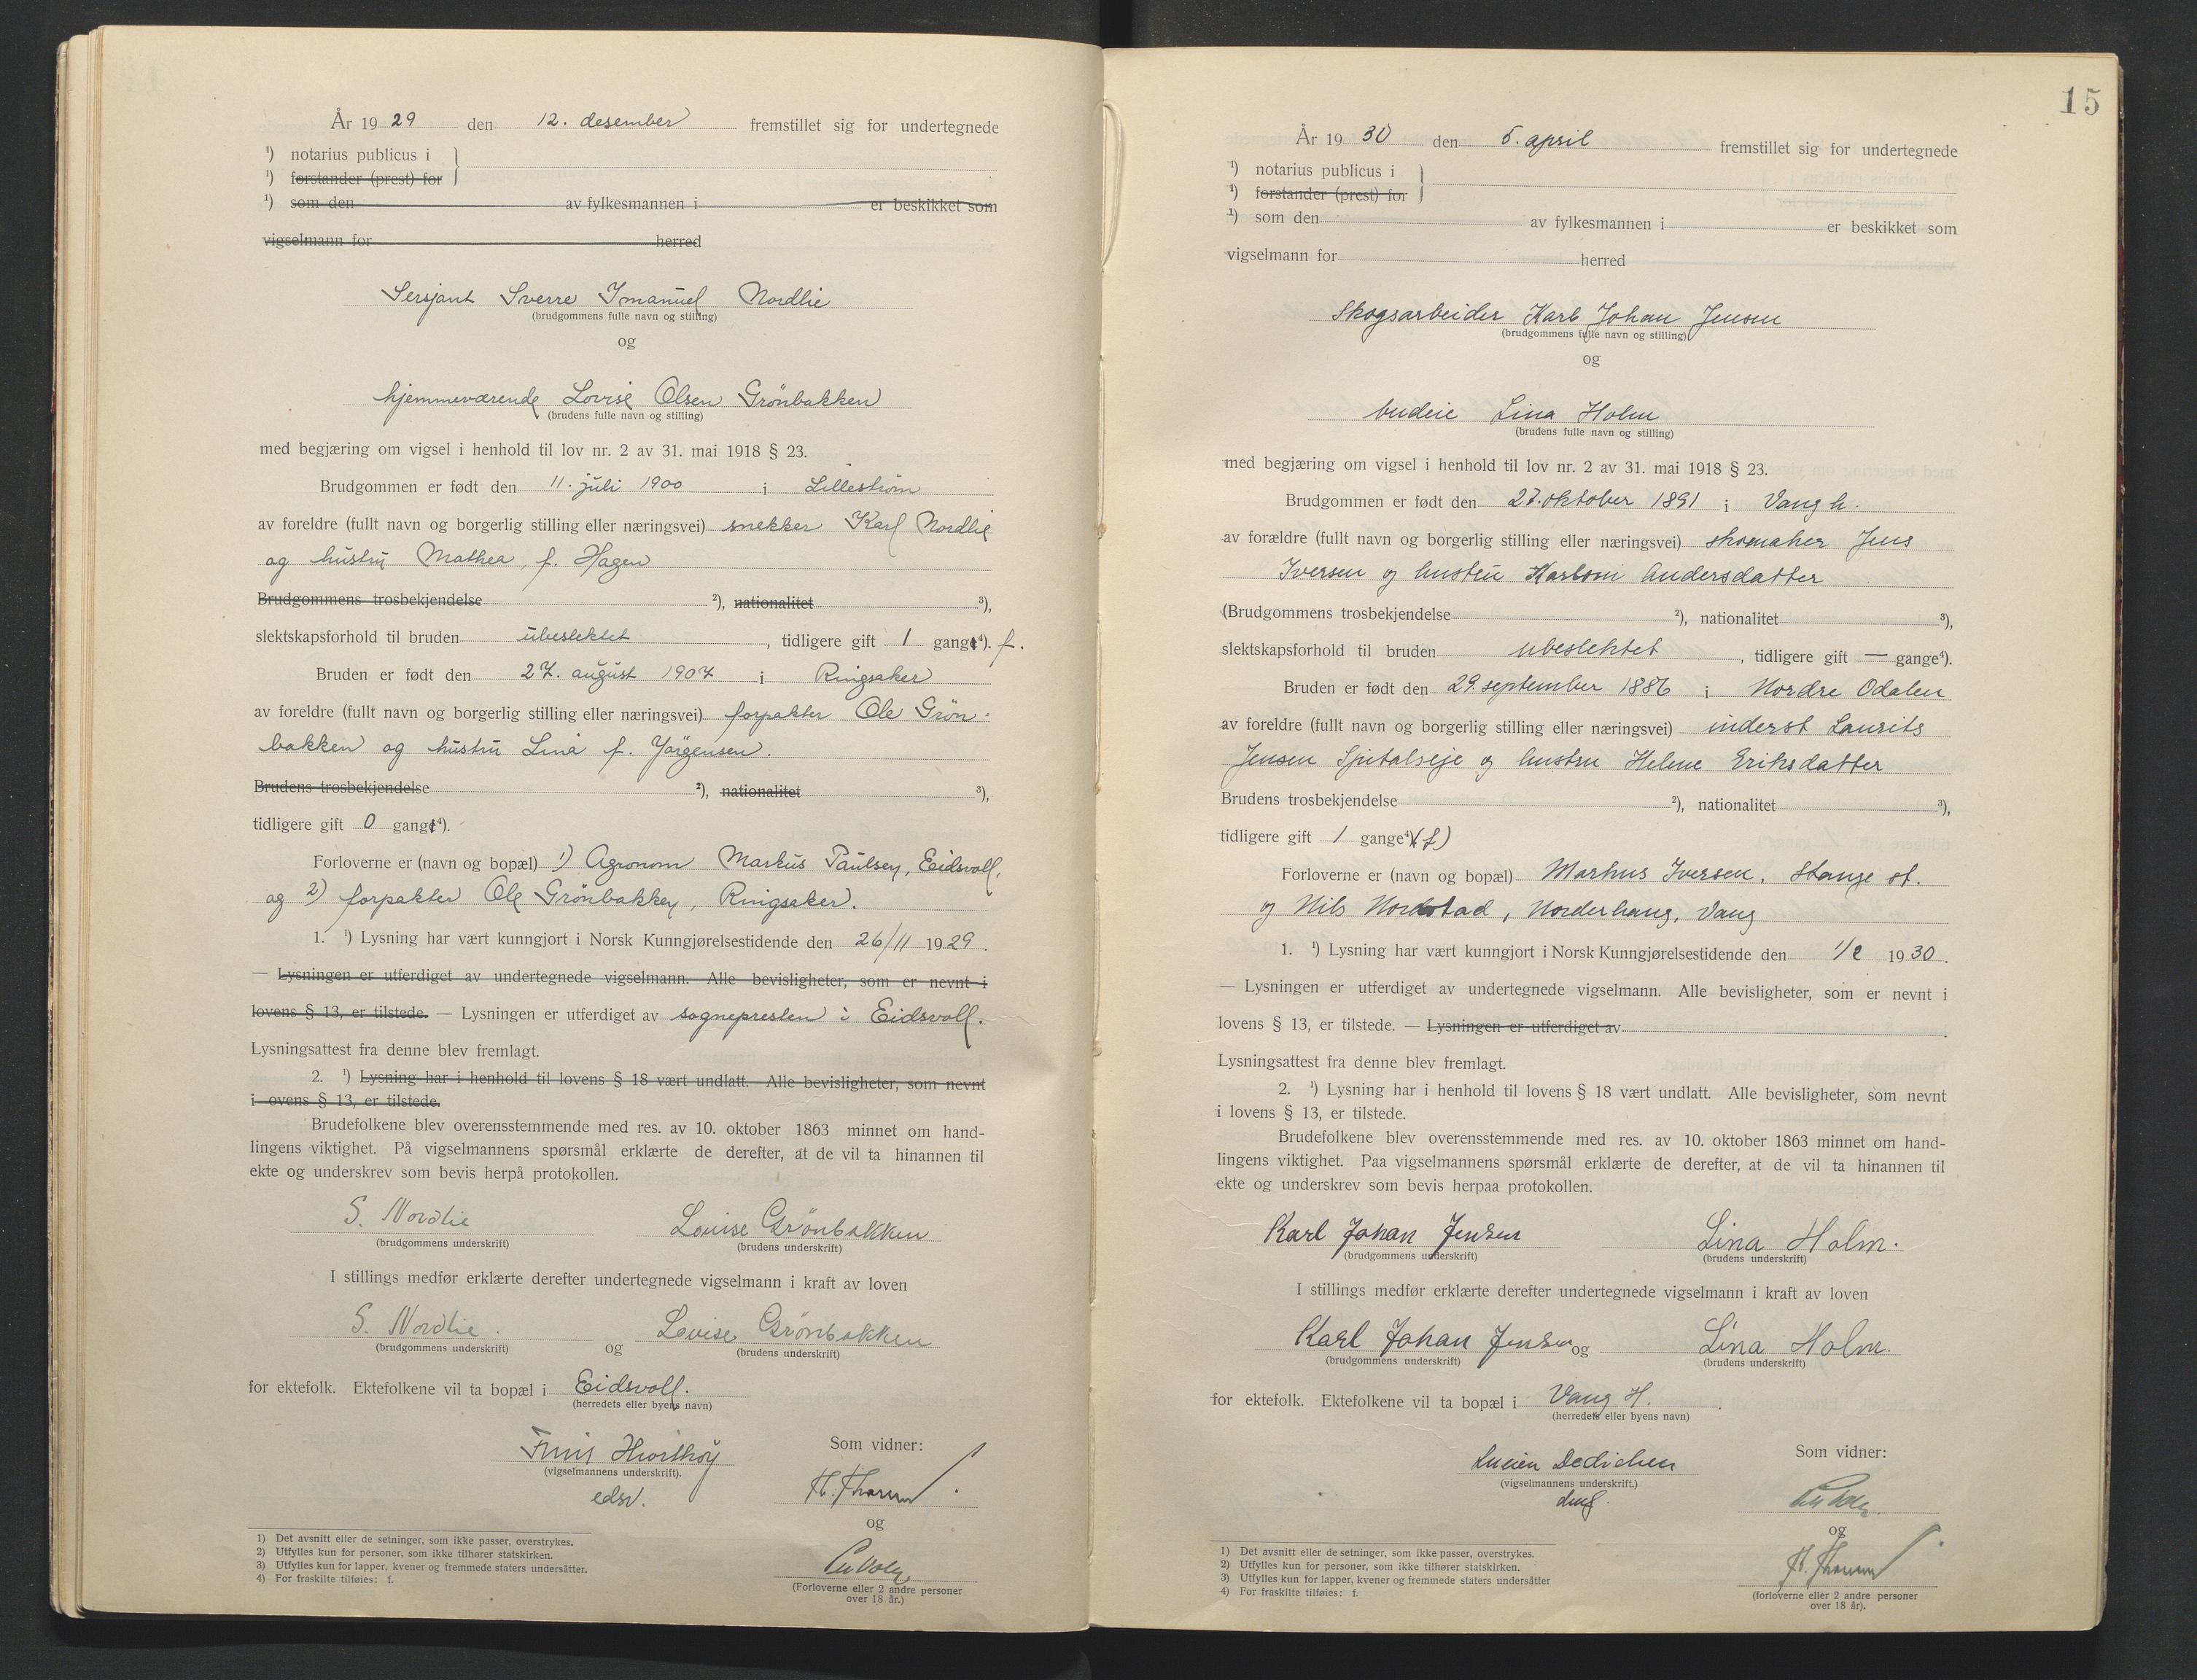 År 1929 den 12. desember fremstillet sig for undertegnede
¹) notarius publicus i
¹) forstander (prest) for
¹) som den av fylkesmannen i er beskikket som
vigselmann for herred
Sersjant Sverre Imanuel Nordlie
(brudgommens fulle navn og stilling)
og
hjemmeværende Lovise Olsen Grönbakken
(brudens fulle navn og stilling)
med begjæring om vigsel i henhold til lov nr. 2 av 31. mai 1918 § 23.
Brudgommen er født den 11. juli 1900 i Lilleström
av foreldre (fullt navn og borgerlig stilling eller næringsvei) snekker Karl Nordlie
og hustru Mathea, f. Hagen
Brudgommens trosbekjendelse ²), nationalitet ³),
slektskapsforhold til bruden ubeslektet, tidligere gift 1 gang⁴). f.
Bruden er født den 27. august 1907 i Ringsaker
av foreldre (fullt navn og borgerlig stilling eller næringsvei) forpakter Ole Grön-
bakken og hustru Lina f. Jörgensen.
Brudens trosbekjendelse ²), nationalitet ³),
tidligere gift 0 gang⁴).
Forloverne er (navn og bopæl) 1) Agronom Markus Paulsen, Eidsvoll,
og 2) forpakter Ole Grönbakken, Ringsaker.
1. ¹) Lysning har vært kunngjort i Norsk Kunngjørelsestidende den 26/11 1929.
— Lysningen er utferdiget av undertegnede vigselmann. Alle bevisligheter, som er nevnt i
lovens § 13, er tilstede. — Lysningen er utferdiget av sognepresten i Eidsvoll.
Lysningsattest fra denne blev fremlagt.
2. ¹) Lysning har i henhold til lovens § 18 vært undlatt. Alle bevisligheter, som nevnt
i ovens § 13, er tilstede.
Brudefolkene blev overensstemmende med res. av 10. oktober 1863 minnet om hand-
lingens viktighet. På vigselmannens spørsmål erklærte de derefter, at de vil ta hinannen til
ekte og underskrev som bevis herpå protokollen.
S. Nordlie Lovise Grönbakken
(brudgommens underskrift) (brudens underskrift)
I stillings medfør erklærte derefter undertegnede vigselmann i kraft av loven
S. Nordlie. og Lovise Grönbakken
(brudgommens underskrift) (brudens underskrift)
for ektefolk. Ektefolkene vil ta bopæl i Eidsvoll.
(herredets eller byens navn)
Som vidner:
(vigselmannens underskrift).
edsv.
og
(Forloverne eller 2 andre personer
over 18 år.)
1) Det avsnitt eller de setninger, som ikke passer, overstrykes.
2) Utfylles kun for personer, som ikke tilhører statskirken.
3) Utfylles kun for lapper, kvener og fremmede staters undersåtter.
4) For fraskilte tilføies: f.
15
År 1930 den 5. april fremstillet sig for undertegnede
¹) notarius publicus i
¹) forstander (prest) for
¹) som den av fylkesmannen i er beskikket som
vigselmann for herred
Skogsarbeider Karl Johan Jensen
(brudgommens fulle navn og stilling)
og
budeie Lina Holm
(brudens fulle navn og stilling)
med begjæring om vigsel i henhold til lov nr. 2 av 31. mai 1918 § 23.
Brudgommen er født den 27. oktober 1891 i Vang h.
av forældre (fullt navn og borgerlig stilling eller næringsvei) skomaker Jens
Iversen og hustru Andersdatter
(Brudgommens trosbekjendelse ²), nationalitet ³),
slektskapsforhold til bruden ubeslektet, tidligere gift — gange⁴).
Bruden er født den 29. september 1886 i Nordre Odalen
av foreldre (fullt navn og borgerlig stilling eller næringsvei) inderst Laurits
Jensen Spitalseje og hustru Helene Eriksdatter
Brudens trosbekjendelse ²), nationalitet ³),
tidligere gift 1 gange⁴) (f)
Forloverne er (navn og bopæl) Markus Iversen, Stange st.
og Nils Nordstad, Norderhaug, Vang
1. ¹) Lysning har vært kunngjort i Norsk Kunngjørelsestidende den 1/2 1930.
— Lysningen er utferdiget av undertegnede vigselmann. Alle bevisligheter, som er nevnt i
lovens § 13, er tilstede. — Lysningen er utferdiget av
Lysningsattest fra denne blev fremlagt.
2. ¹) Lysning har i henhold til lovens § 18 vært undlatt. Alle bevisligheter, som nevnt
i lovens § 13, er tilstede.
Brudefolkene blev overensstemmende med res. av 10. oktober 1863 minnet om hand-
lingens viktighet. Paa vigselmannens spørsmål erklærte de derefter, at de vil ta hinannen til
ekte og underskrev som bevis herpaa protokollen.
Karl Johan Jensen Lina Holm.
(brudgommens underskrift) (brudens underskrift)
I stillings medfør erklærte derefter undertegnede vigselmann i kraft av loven
Karl Johan Jensen og Lina Holm.
(brudgommens underskrift) (brudens underskrift)
for ektefolk. Ektefolkene vil ta bopæl i Vang H.
(herredets eller byens navn)
Som vidner:
Lucien Dedichen
(vigselmannens underskrift.)
og
(forloverne eller 2 andre personer
over 18 år).
1) Det avsnitt eller de setninger, som ikke passer, overstrykes.
2) Utfylles kun for personer, som ikke tilhører statskirken.
3) Utfylles kun for lapper, kvener og fremmede staters undersåtter
4) For fraskilte tilføies: f.